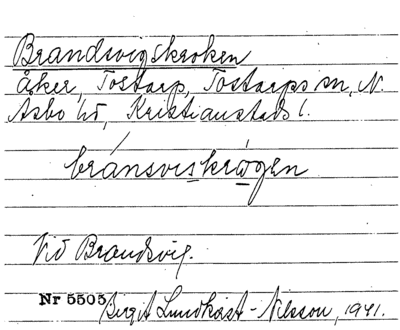 Brandsvigskroken
Åker, Tostarp, Tostarps sn, N.
Åsbo hd, Kristianstads l.
bránsviskrǫgen
Vid Brandsvig.
Nr 5505. Birgit Lundkvist-Nilsson, 1941.